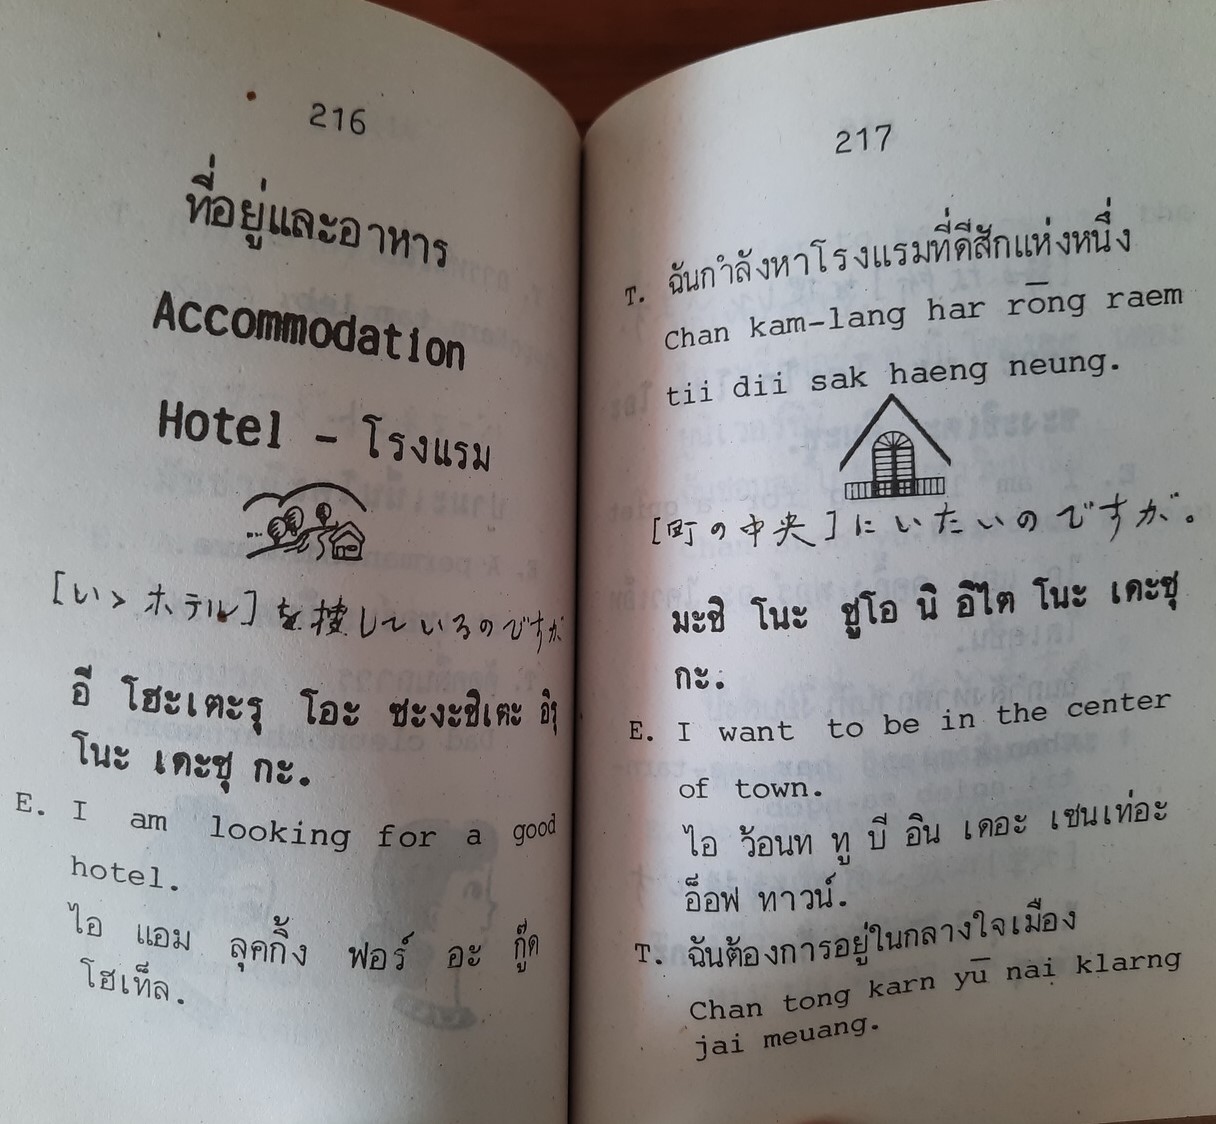 216
ที่อยู่และอาหาร
Accommodation
Hotel - โรงแรม
[いゝ ホテル] を捜しているのですが
อี โฮะเตะรุ โอะ ซะงะชิเตะ อิรุ
โนะ เดะซุ กะ.
E. I am looking for a good
hotel.
ไอ แอม ลุคกิ้ง ฟอร์ อะ กู๊ด
โฮเท็ล.
217
T. ฉันกำลังหาโรงแรมที่ดีสักแห่งหนึ่ง
Chan kam-lang har rōng raem
tii dii sak haeng neung.
[町の中央] にいたいのですが。
มะชิ โนะ ชูโอ นิ อิไต โนะ เดะซุ
กะ.
E. I want to be in the center
of town.
ไอ ว้อนท ทู บี อิน เดอะ เซนเท่อะ
อ็อฟ ทาวน์.
T. ฉันต้องการอยู่ในกลางใจเมือง
Chan tong karn yū nai klarng
jai meuang.